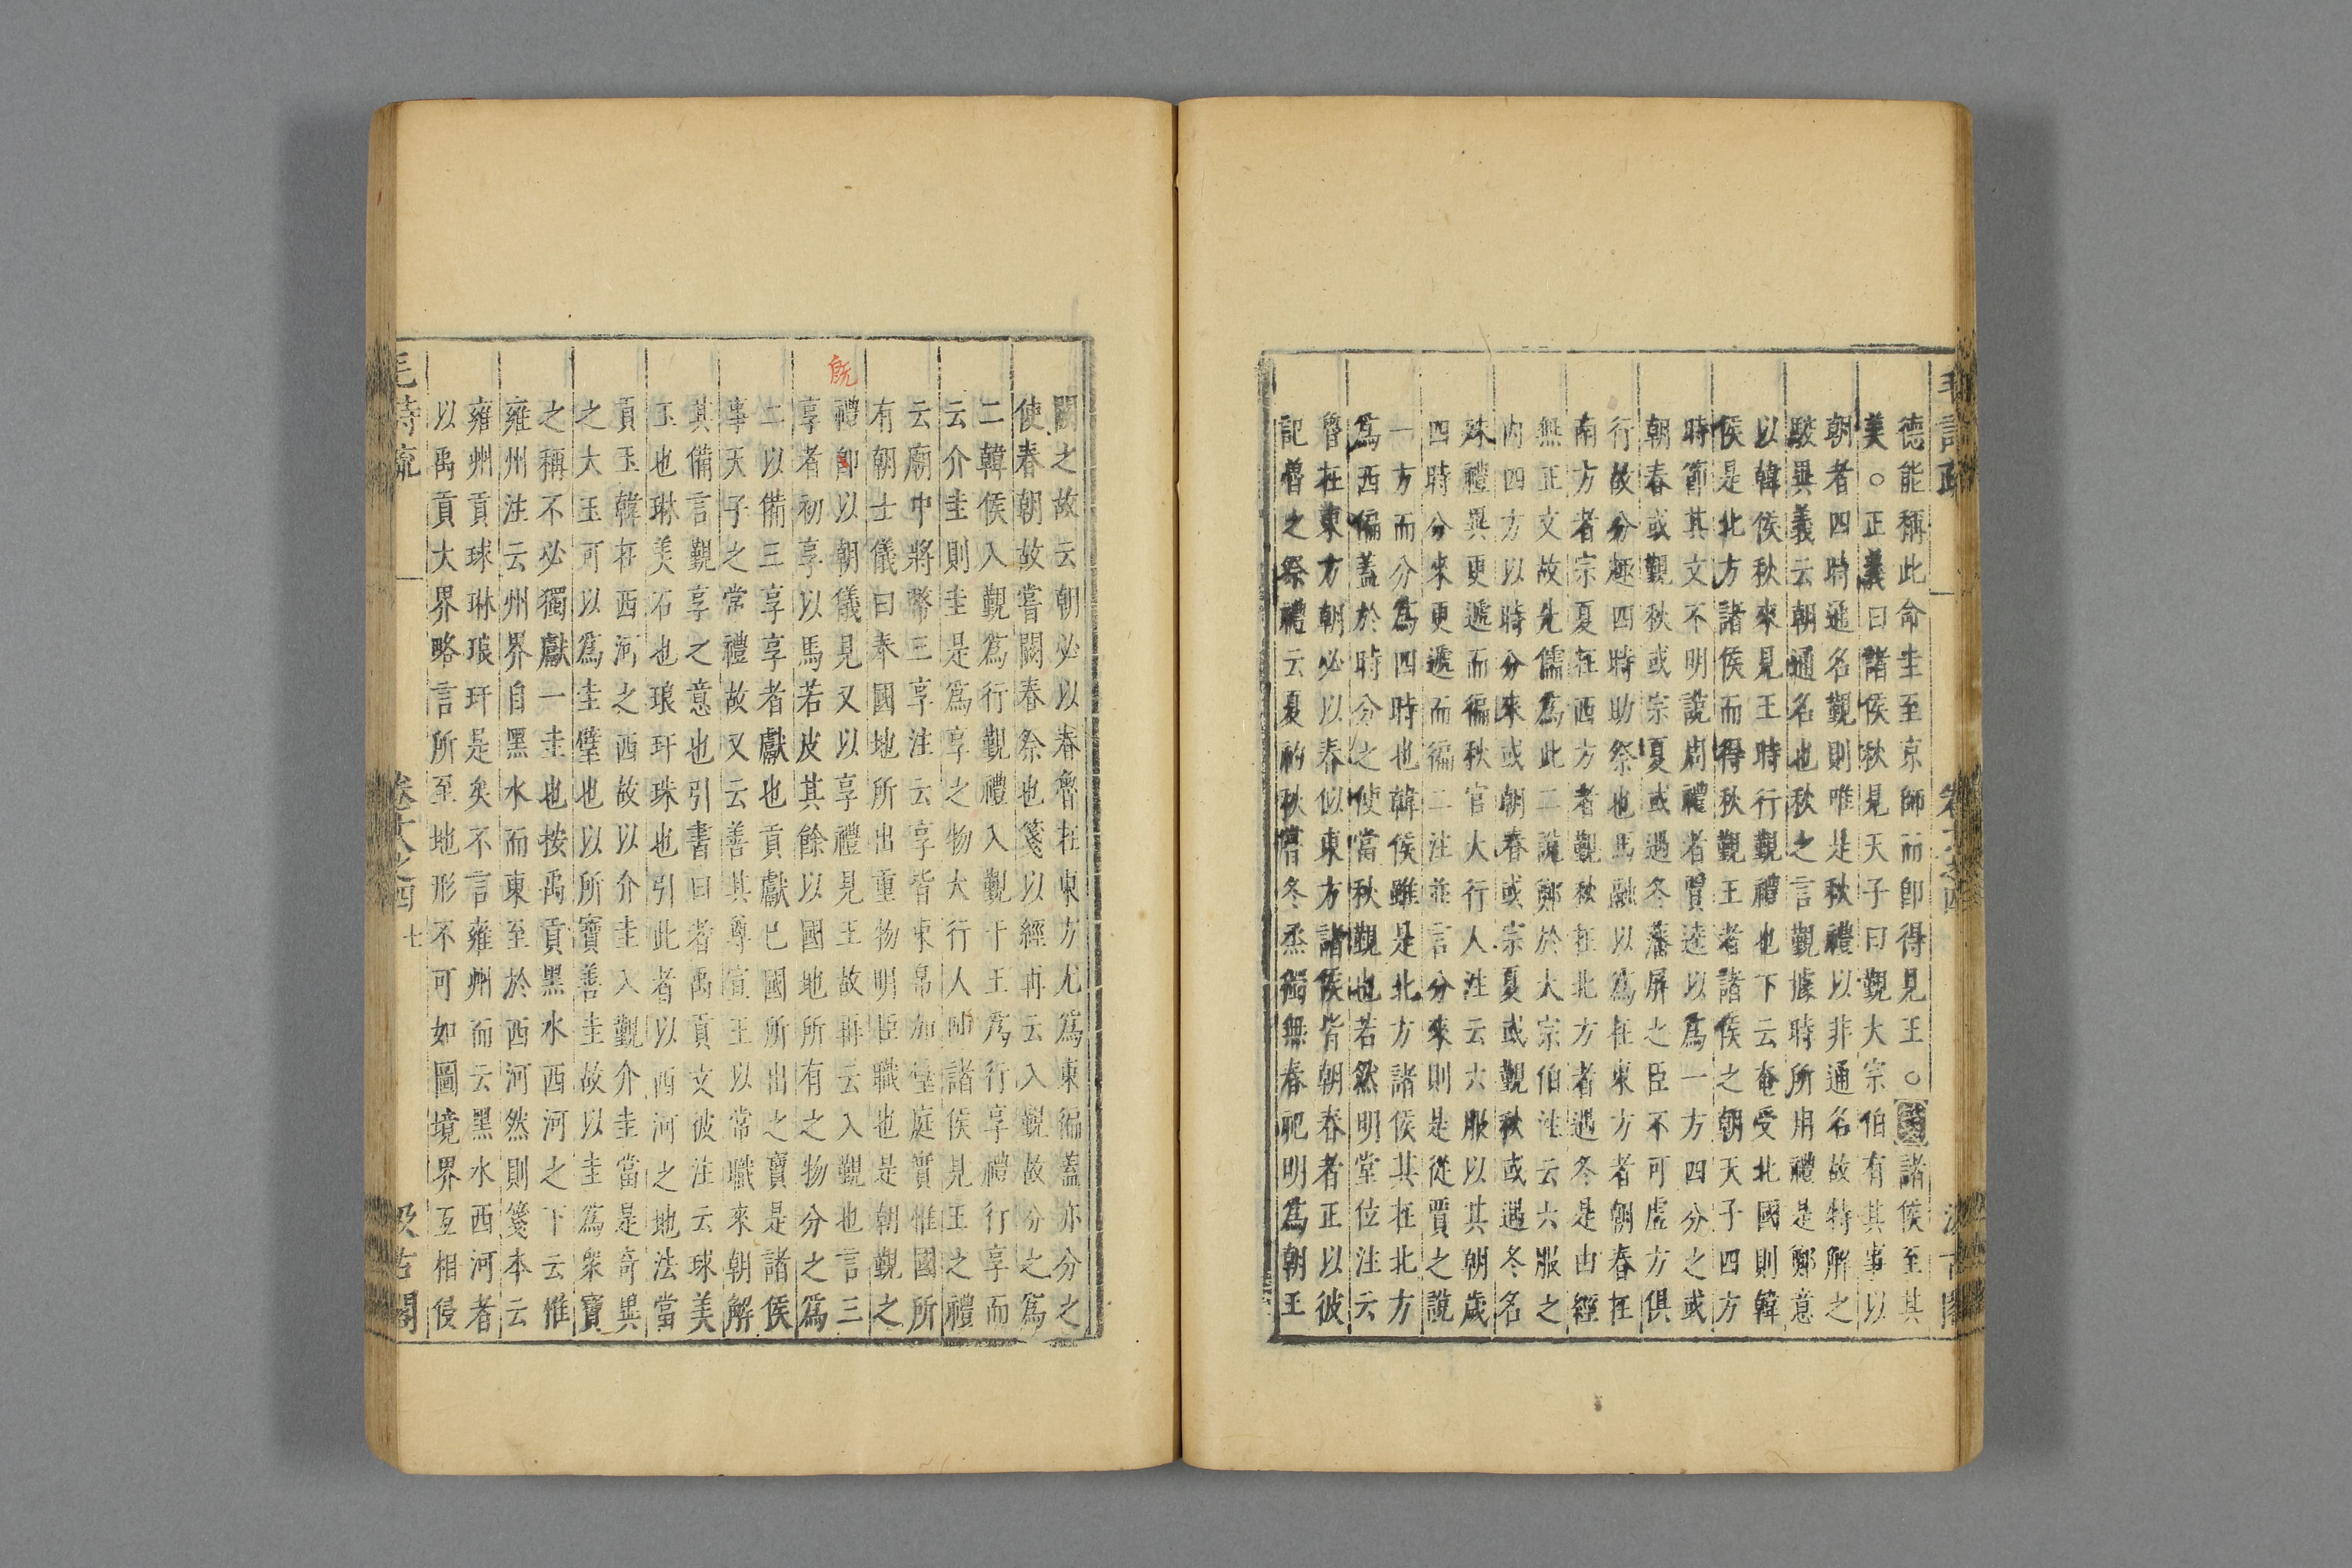 德能稱此命圭至京師而卽得見王○諸侯至其
美○正義曰諸侯秋見天子曰覲大宗伯有其事以
朝者四時通名覲則唯是秋禮以非通名故特解之
駮異義云朝通名也秋之言覲據時所用禮是鄭意
以韓侯秋來見王時行覲禮也下云奄受北國則韓
侯是北方諸侯而得秋覲王者諸侯之朝天子四方
時節其文不明說周禮者賈逵以爲一方四分之或
朝春或覲秋或宗夏或遇冬藩屏之臣不可虛方俱
行故分趣四時助祭也馬融以爲在東方者朝春在
南方者宗夏在西方者覲秋在北方者遇冬是由經
無正文故先儒爲此二說鄭於大宗伯注云六服之
内四方以時分來或朝春或宗夏或覲秋或遇冬名
殊禮異更遞而徧秋官大行人注云六服以其朝歲
四時分來更遞而徧二注並言分來則是從賈之說
一方而分爲四時也韓侯雖是北方諸侯其在北方
爲西偏蓋於時分之使當秋覲也若然明堂位注云
魯在東方朝必以春似東方諸侯皆朝春者正以彼
記魯之祭禮云夏礿秋嘗冬烝獨無春祀明爲朝王
闕之故云朝必以春魯在東方尤爲東偏蓋亦分之
使春朝故嘗闕春祭也箋以經再云入覲故分之爲
二韓侯入覲爲行覲禮入覲于王爲行享禮行享而
云介圭則圭是爲享之物大行人師諸侯見王之禮
云廟中將幣三享注云享皆束帛加璧庭實惟國所
有朝士儀曰奉國地所出重物明臣職也是朝覲之
禮卽以朝儀見又以享禮見王故再云入覲也言三
享者初享以馬若皮其餘以國地所有之物分之爲
二以備三享享者獻也貢獻已國所出之寶是諸侯
事天子之常禮故又云善其尊宣王以常職來朝解
其備言覲享之意也引書曰者禹貢文彼注云球美
玉也琳美石也琅玕珠也引此者以西河之地法當
貢玉韓在西河之西故以介圭入覲介圭當是奇異
之大玉可以爲圭璧也以所寶善圭故以圭爲衆寶
之稱不必獨獻一圭也按禹貢黑水西河之下云惟
雍州注云州界自黑水而東至於西河然則箋本云
雍州貢球琳琅玕是矣不言雍州而云黑水西河者
以禹貢大界略言所至地形不可如圖境界互相侵
毛詩疏
七
汲古閣
旣